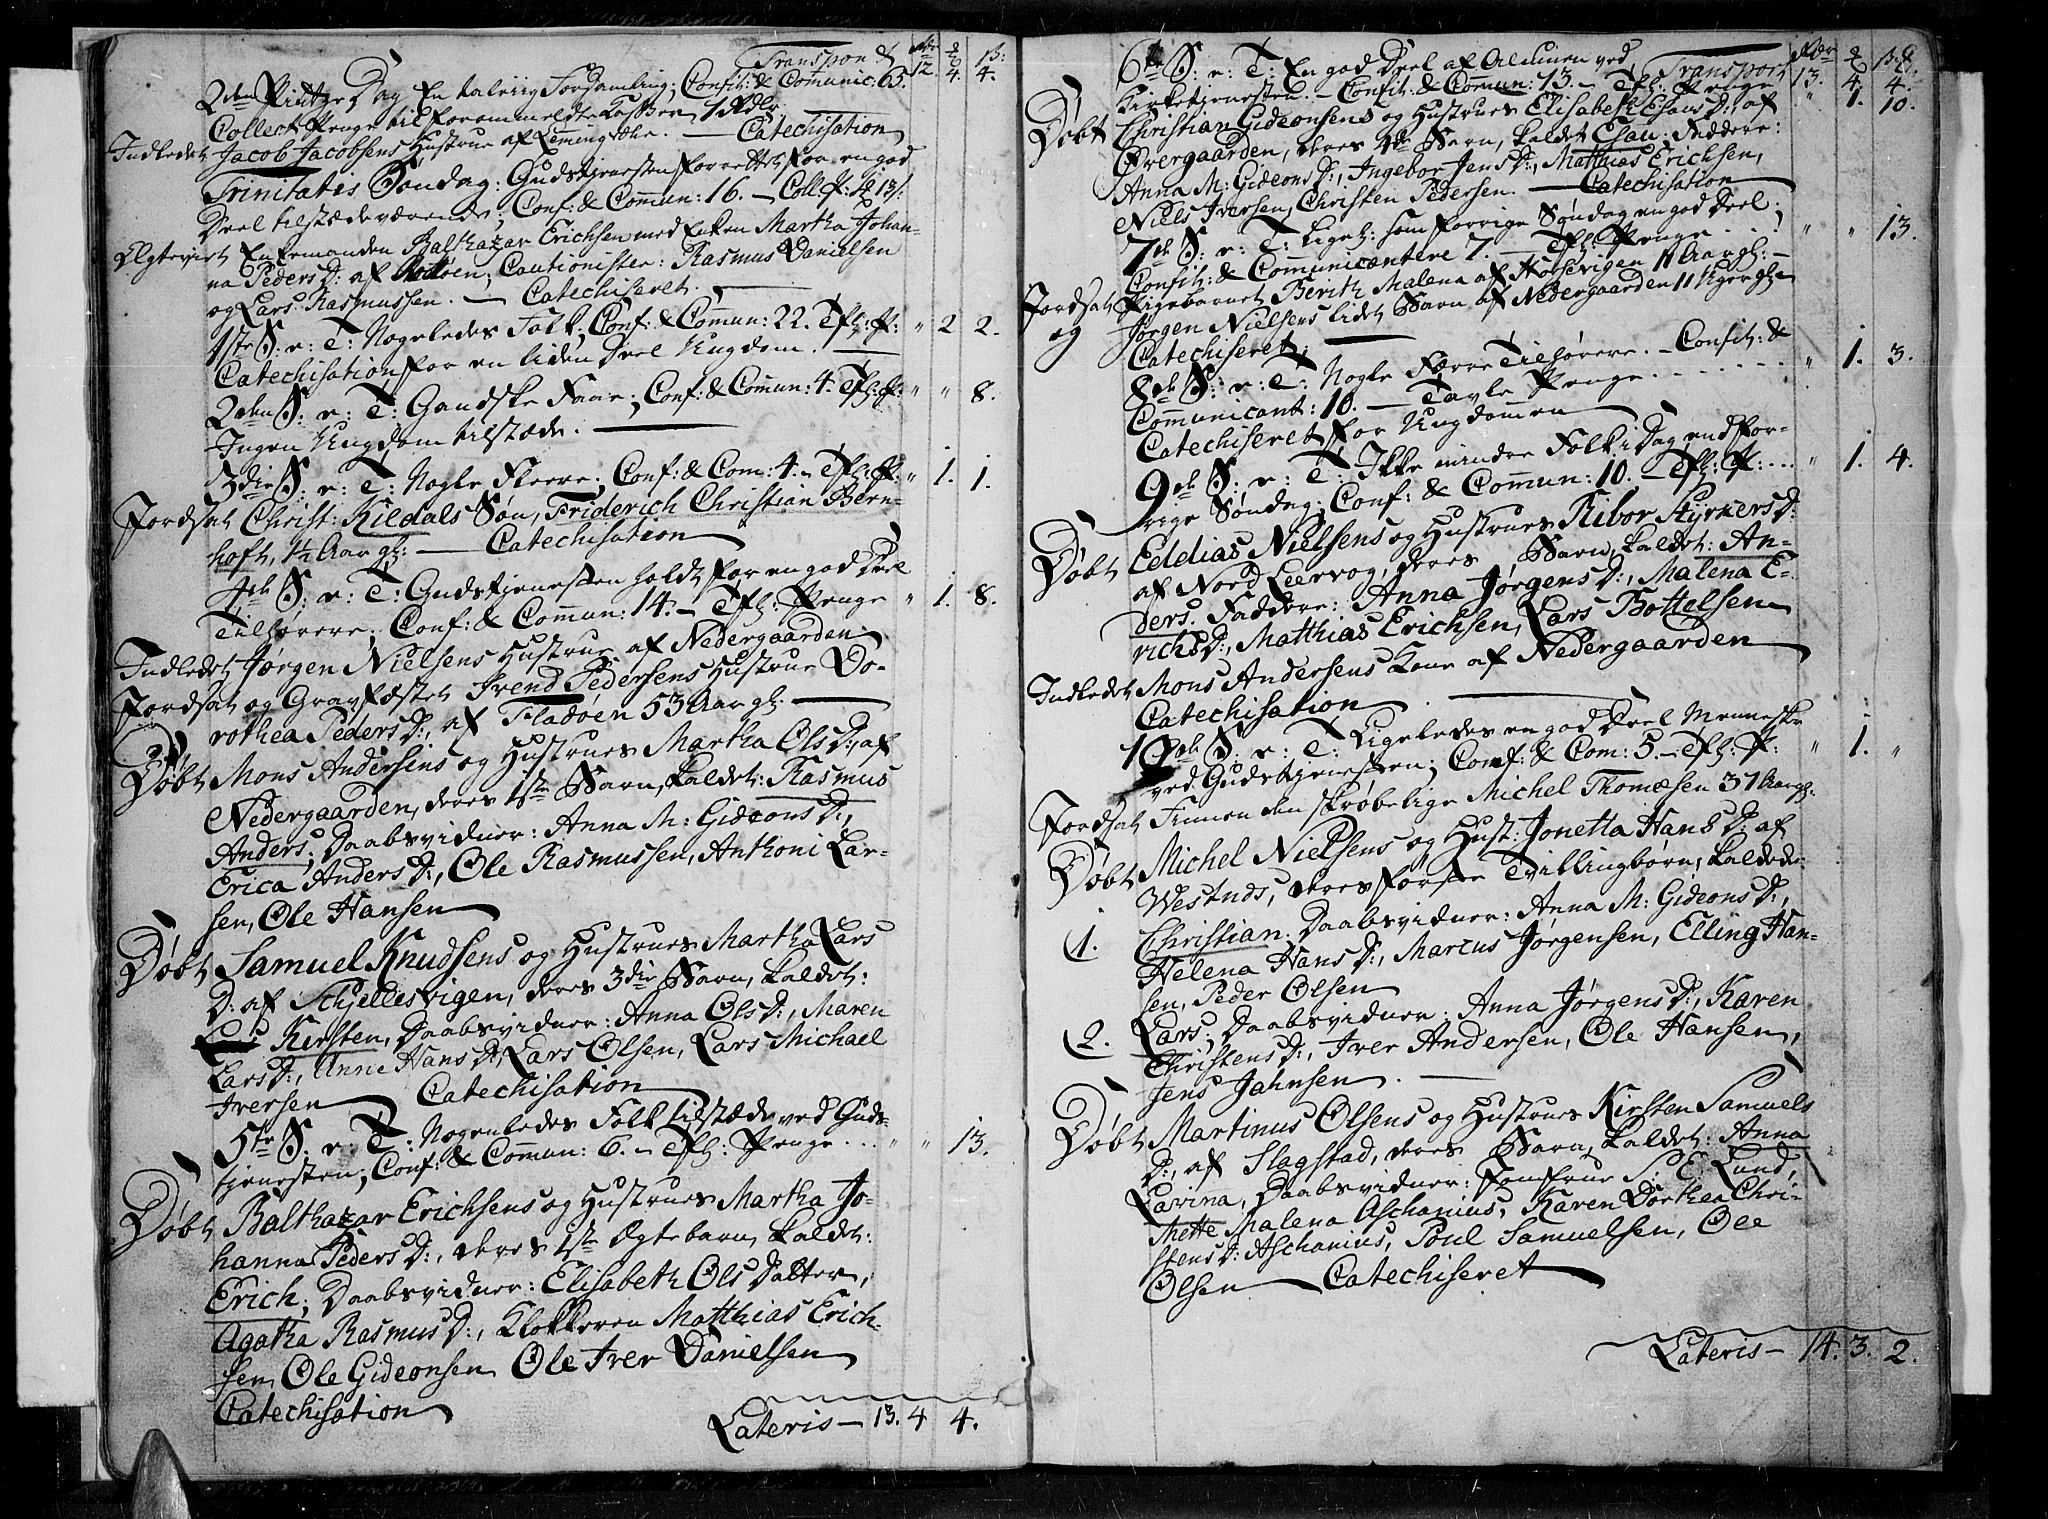 Transport Rdr. 12. 4. 4.
2den Pintze Dag En talrig Forsamling; Confit: & Communic: 65.
Collect Penge til forommeldte Casser 1 Rdlr.
Indledet Jacob Jacobsens Hustrue af — Catechisation
Trinitatis Søndag: Gudstjenesten forrettet for en god
Deel tilstædeværende; Conf: & Commun: 16. — Coll: P:
Ægteviet Enkemanden Balthazar Erichsen med Enken Martha Johan-
na Peders D: af Rolløen; Cautionister: Rasmus Danielsen
og Lars Rasmussen. — Catechiseret. —
1ste S: e: T: Nogeledes Folk; Conf: & Commun: 22. Tfl: P: " 2 2.
Catechisation for en liden Deel Ungdom. —
2den S: e: T: Gandske Faae; Conf: & Commun: 4. Tfl: P: " " 8.
Ingen Ungdom tilstæde. —
3die S: e: T: Nogle Fleere; Conf: & Com: 4. — Tfl: P: " 1. 1.
Jordsat Christ: Kildals Søn, Friderich Christian Bern-
hoft, 1½ Aar gl: — Catechisation
4de S: e: T: Gudstjenesten holdt for en god Deel
Tilhørere; Conf: & Commun: 14. — Tfl: Penge " 1. 8.
Indledet Jørgen Nielsens Hustrue af Nedergaarden
Jordsat og Gravfæstet Trend Pedersens Hustrue Do-
rothea Peders D:, af Fladøen 53 Aar gl. —
Døbt Mons Andersens og Hustrues Martha Ols D: af
Nedergaarden, deres 1ste Barn, kaldet: Rasmus
Anders; Daabsvidner: Anna M: Gideons D:,
Erica Anders D:, Ole Rasmussen, Anthoni Lar-
sen, Ole Hansen
Døbt Samuel Knudsens og Hustrues Martha Lars
D: af Schjellesvigen, deres 3die Barn, kaldet:
Kirsten, Daabsvidner: Anna Ols D:, Maren
Lars D:, Anne Hans D:, Lars Olsen, Lars Michael
Iversen Catechisation
5te S: e: T: Nogenledes Folk tilstæde ved Guds-
tjenesten; Conf: & Commun: 6. — Tfl: Penge . . . " " 13.
Døbt Balthazar Erichsens og Hustrues Martha Jo-
hanna Peders D:, deres 1ste Ægtebarn, kaldet:
Erich; Daabsvidner: Elisabeth Ols Datter,
Agatha Rasmus D:, Klokkeren Matthias Erich-
sen, Ole Gideonsen, Ole Iver Danielsen
Catechisation
Lateris — 13. 4 4.
Transport Rdr. 13. 4. 4.
6te S: e: T: En god Deel af Almuen ved
Kirketjenesten. — Confit: & Commun: 13. — Tfl: Penge " 1. 10.
Døbt Christian Gideonsens og Hustrues Elisabeth Esaus D: af
Øvergaarden, deres 4de Barn, kaldet Esau: Faddere:
Anna M: Gideons D:, Ingebor Jens D:, Matthias Erichsen,
Niels Iversen, Christen Pedersen. — Catechisation
7de S: e: T: Ligel: som forrige Søndag en god Deel;
Confit: & Communicantere 7. — Tfl: Penge . . . " " 13.
Jordsat Pigebarnet Berith Malena af 11 Aar gl: —
og Jørgen Nielsens lidet Barn af Nedergaarden 11 Uger gl:
Catechiseret; —
8de S: e: T: Nogle Færre Tilhørere. — Confit: &
Communicant: 10. — Tavle Penge . . . . " 1. 3.
Catechiseret for Ungdommen
9de S: e: T: Ikke mindre Folk i Dag end for-
rige Søndag; Conf: & Commun: 10. — Tfl: P: . . . " 1. 4.
Døbt Eddias Nielsens og Hustrues Ribor Styrkers D:
af Nord Leervog, deres Barn, kaldet: An-
ders. Faddere: Anna Jørgens D:, Malena E-
richs D:, Matthias Erichsen, Lars Bottelsen
Indledet Mons Andersens Kone af Nedergaarden
Catechisation —
10de S: e: T: Ligeledes en god Deel Menneske
ved Gudstjenesten; Conf: & Com: 5. — Tfl: P: " 1. "
Jordsat Finnen den skrøbelige Michel Thomæsen 37 Aar gl:
Døbt Michel Nielsens og Hust: Jonetta Hans D: af
Westnds, deres første Tvillingbørn, kaldede:
1. Christian: Daabsvidner: Anna M: Gideons D:,
Helena Hans D:, Marcus Jørgensen, Elling Han-
sen, Peder Olsen
2. Lars; Daabsvidner: Anna Jørgens D:, Karen
Christens D:, Iver Andersen, Ole Hansen,
Jens Jahnsen. —
Døbt Martinus Olsens og Hustrues Kirsten Samuels
D:, af Slagstad, deres Barn, kaldet: Anna
Lavina, Daabsvidner: Jomfrue S: E: Lund,
Mette Malena Aschanius, Karen Dorthea Chri-
stens D: Aschanius, Poul Samuelsen, Ole
Olsen — Catechiseret
Lateris — 14. 3. 2.